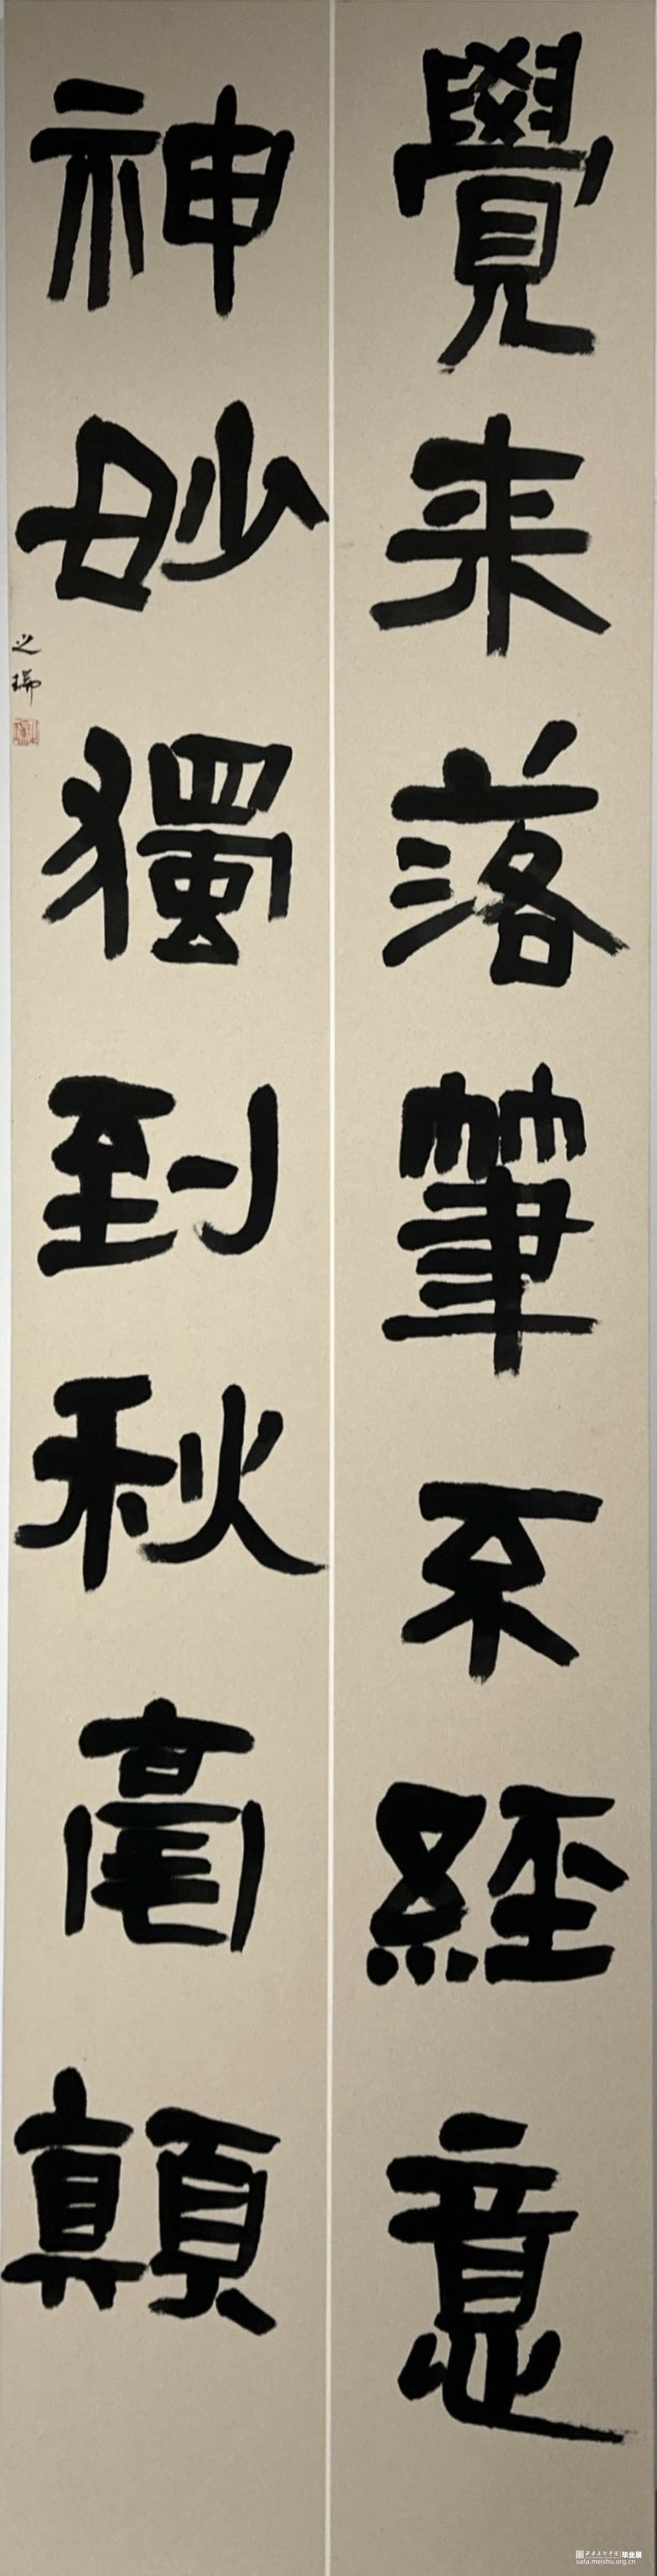 覺来落筆不經意
神妙獨到秋毫顛
之瑞
西安美术学院 毕业展
xafa.meishu.org.cn